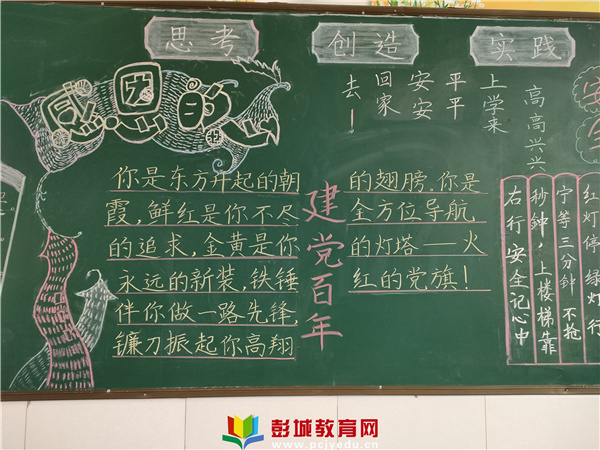 思考
创造
实践
你是东方升起的朝
霞,鲜红是你不尽
的追求,金黄是你
永远的新装,铁锤
伴你做一路先锋,
镰刀振起你高翔
建党百年
的翅膀.你是
全方位导航
的灯塔——火
红的党旗!
高高兴兴
上学来
平平
安安
回家
去!
安全
红灯停绿灯行
宁等三分钟不抢
秒钟,上楼梯靠
右行安全记心中
彭城教育网
www.pcjyedu.cn